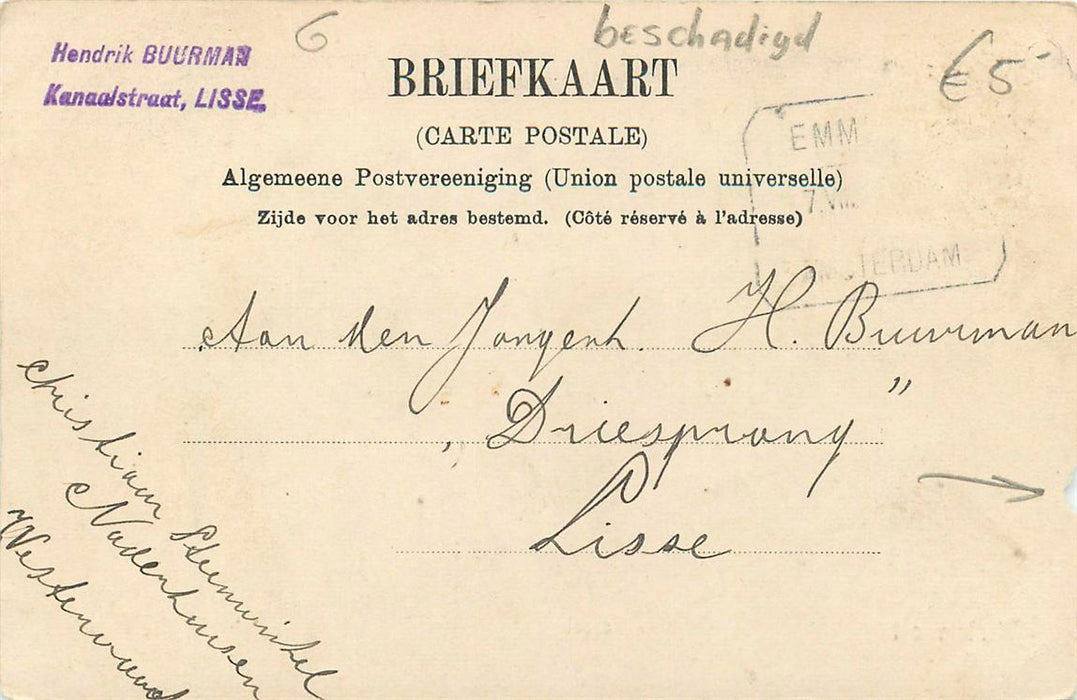 Hendrik BUURMAN
Kanaalstraat, LISSE.
6
beschadigd
€ 5-
BRIEFKAART
(CARTE POSTALE)
Algemeene Postvereeniging (Union postale universelle)
Zijde voor het adres bestemd. (Côté réservé à l'adresse)
EMM
7.VII
TERDAM
Aan den Jongenh. H. Buurman
„Driesprong”
Lisse
Christiaan Steenwinkel